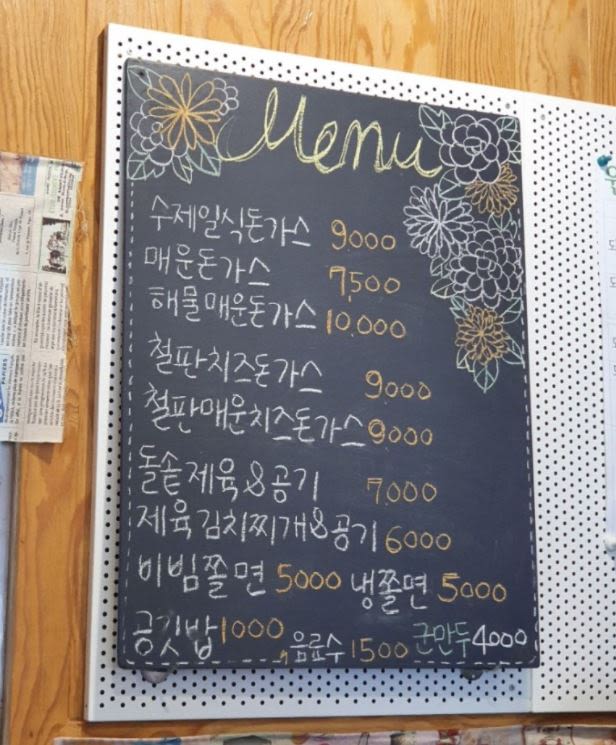 Menu
수제일식돈가스 9000
매운돈가스 7,500
해물매운돈가스 10,000
철판치즈돈가스 9000
철판매운치즈돈가스 9000
돌솥제육&공기 7000
제육김치찌개&공기 6000
비빔쫄면 5000 냉쫄면 5000
공깃밥 1000 음료수 1500 군만두 4000